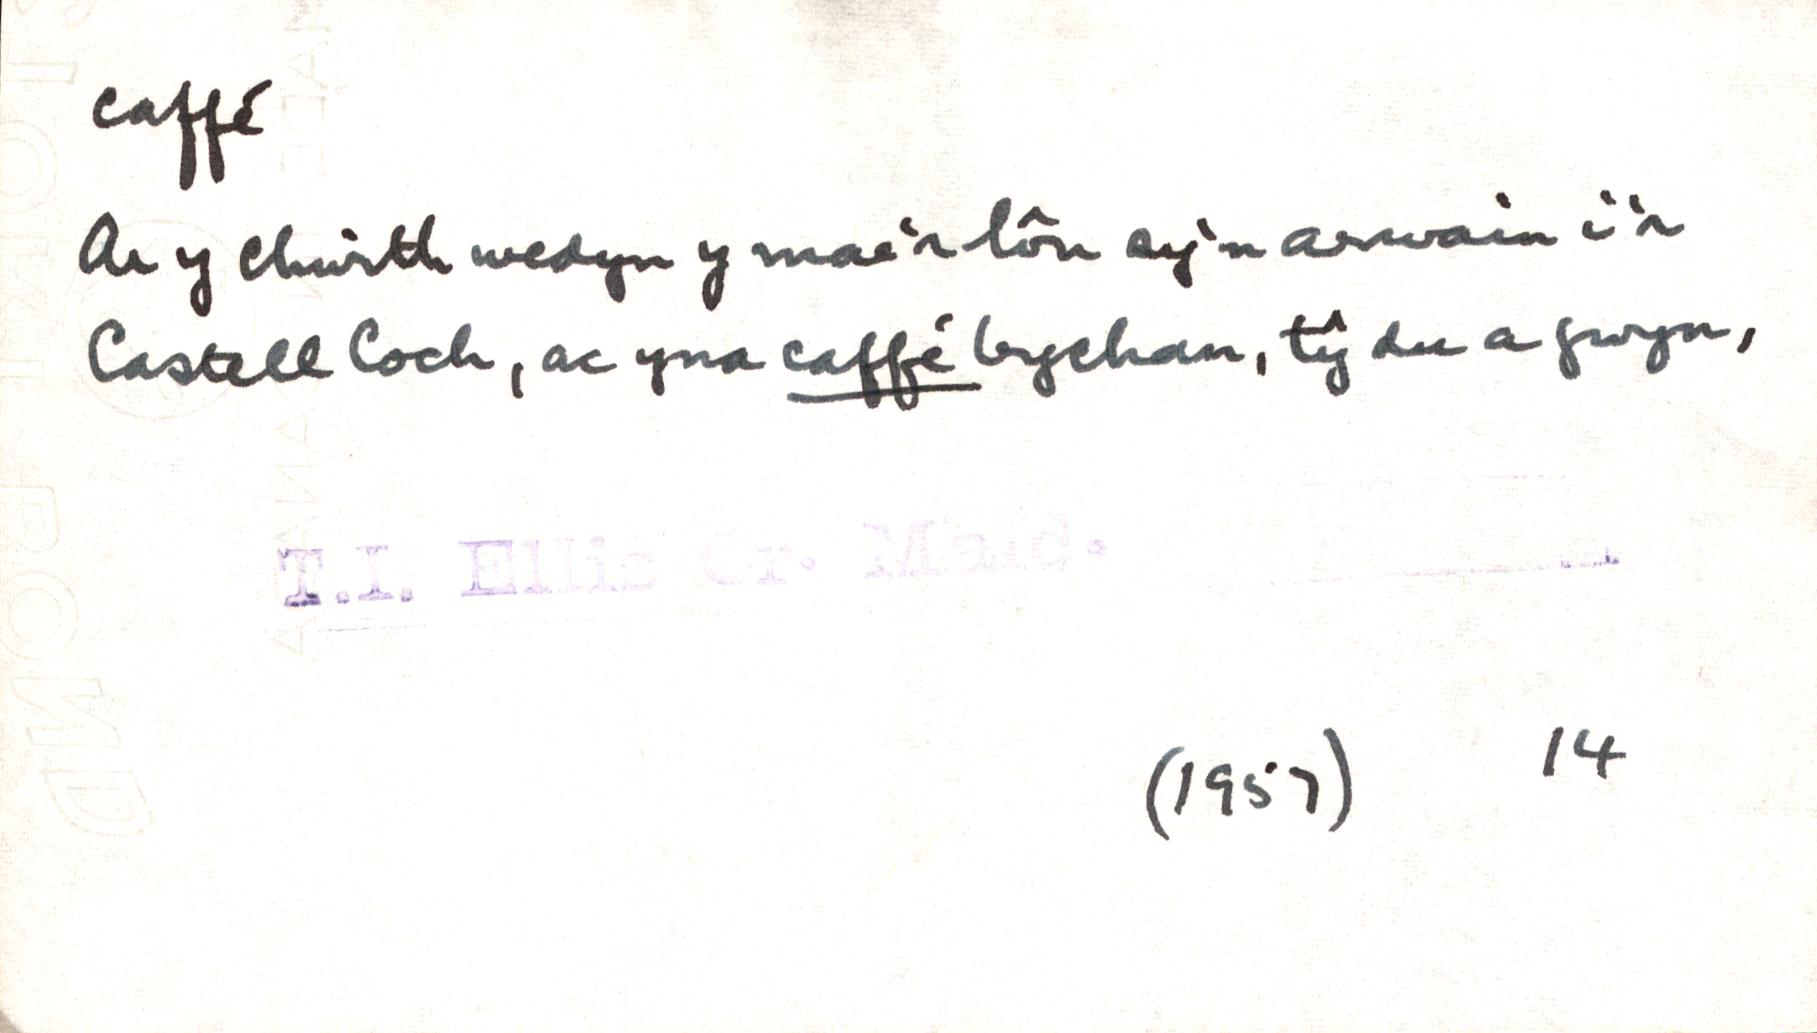 caffé
Ar y chwith wedyn y mae'r lôn sy'n arwain i'r
Castell Coch, ac yna caffé bychan, tŷ du a gwyn,
T.I. Ellis Cr. Mald.
(1957) 14